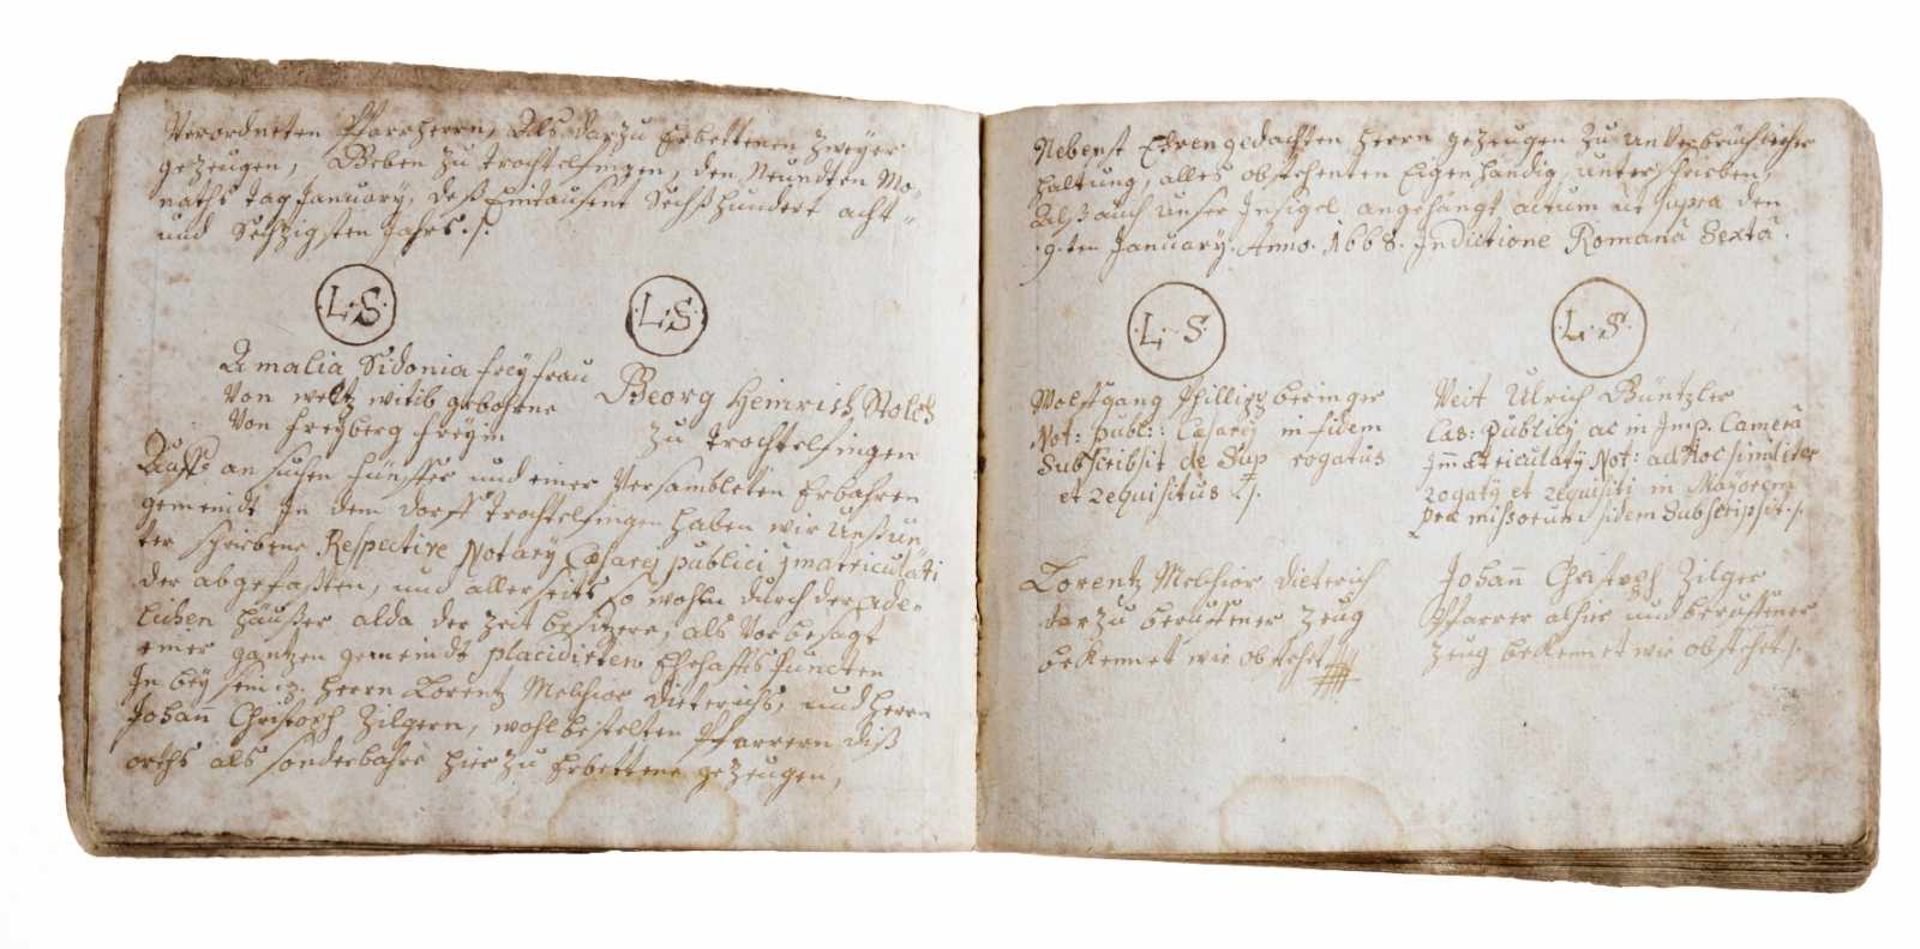 Verordneten Pfarrherrn, Als darzu Erbettenen Zweyer
gezeugen, Geben zu Trochtelfingen, den Neundten Mo-
naths tag January, deß Eintausent Sechßhundert acht-
und Sechzigsten Jahrs ./.
L. S.
L. S.
Amalia Sidonia freyfrau
Von weltz witib gebohrne
Von freyberg freyin
Georg Heinrich Stolch
zu Trochtelfingen
Auff an suchen fünffer und einer Versambleten Erbahren
gemeindt In dem dorff Trochtelfingen haben wir Unßun
ter schribene Respective Notarÿ Cæsarej publici jmatriculati
der abgefaßten, und allerseits so wohln durch der Ade-
lichen Häußer alda der Zeit besitzere, als Vor besagt
einer gantzen gemeindt placidirten Ehehafftspuncten
In beÿ sein Herrn Lorentz Melchior Dieterichs, und Herrn
Johann Christoph Zilgern, wohlbestelten Pfarrern diß
orths als sonderbahre hierzu Erbettene gezeugen,
Nebenst Ehrengedachten Herrn gezeugen Zu Unverbrüchlicher
haltung, alles obstehenten Eigenhändig unterschrieben,
Alß auch Unser Insigel angehängt actum ut supra den
9.ten January. Anno. 1668. Indictione Romanâ Sextâ.
L. S.
L. S.
Wolffgang Phillipp beringer
Not: publ:: Cæsarÿ in fidem
Subscribsit de Sup rogatus
et requisitus ./.
Veit Ulrich Büntzler
Cæs: Publicÿ ac in Imp. Camerâ
Immatriculatÿ Not: ad Hoc similiter
rogatÿ et requisiti in Majorem
præ missorum fidem Subscripsit ./.
Lorentz Melchior Dieterich
darzu beruffener Zeug
bekennet wie obstehet
Johann Christoph Zilger
Pfarrer alhier und beruffener
Zeug bekennet wie obstehet ./.